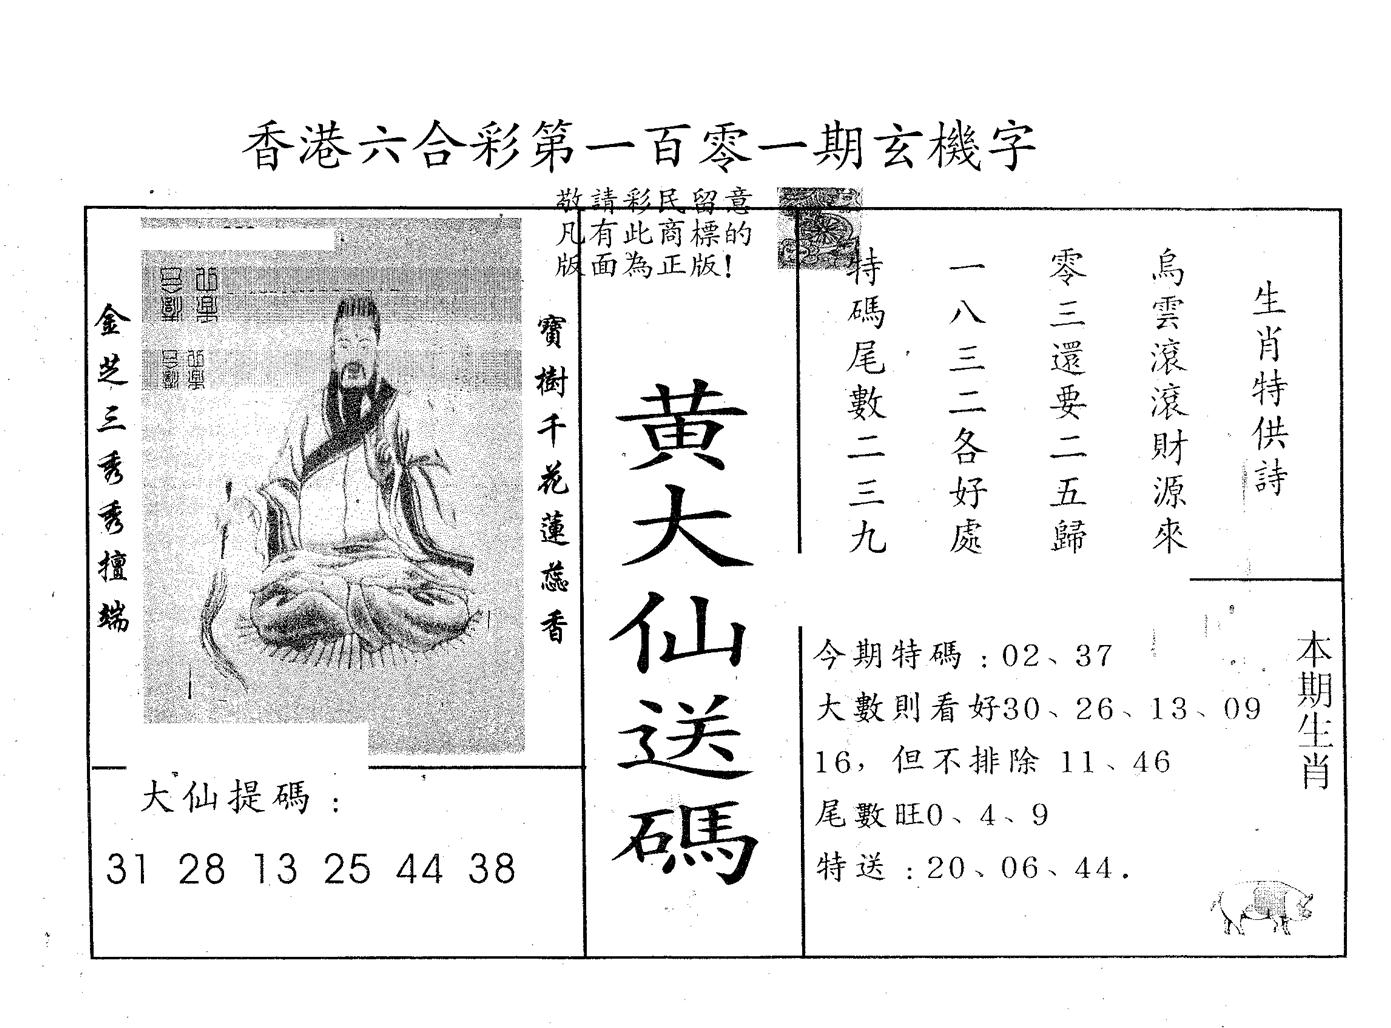 香港六合彩第一百零一期玄機字
敬請彩民留意
凡有此商標的
版面為正版!
生肖特供詩
烏雲滾滾財源來
零三還要二五歸
一八三二各好處
特碼尾數二三九
黃大仙送碼
寶樹千花蓮蕊香
金芝三秀秀擅端
大仙提碼：
31 28 13 25 44 38
今期特碼：02、37
大數則看好30、26、13、09
16，但不排除 11、46
尾數旺0、4、9
特送：20、06、44.
本期生肖